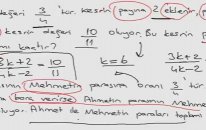 değeri 3/4 'tür kesrin payına 2 eklenir, p
kesrin değeri 10/11 oluyor. Bu kesrin p
mı kaçtır?
3k+2/4k-2 = 10/11 k=6 3k+2/4k-2
ısının Mehmetin parasına oranı 3/4 'tür
borç verirse Ahmetin parasının Mehme
luyor. Ahmet ile Mehmetin paraları toplamı